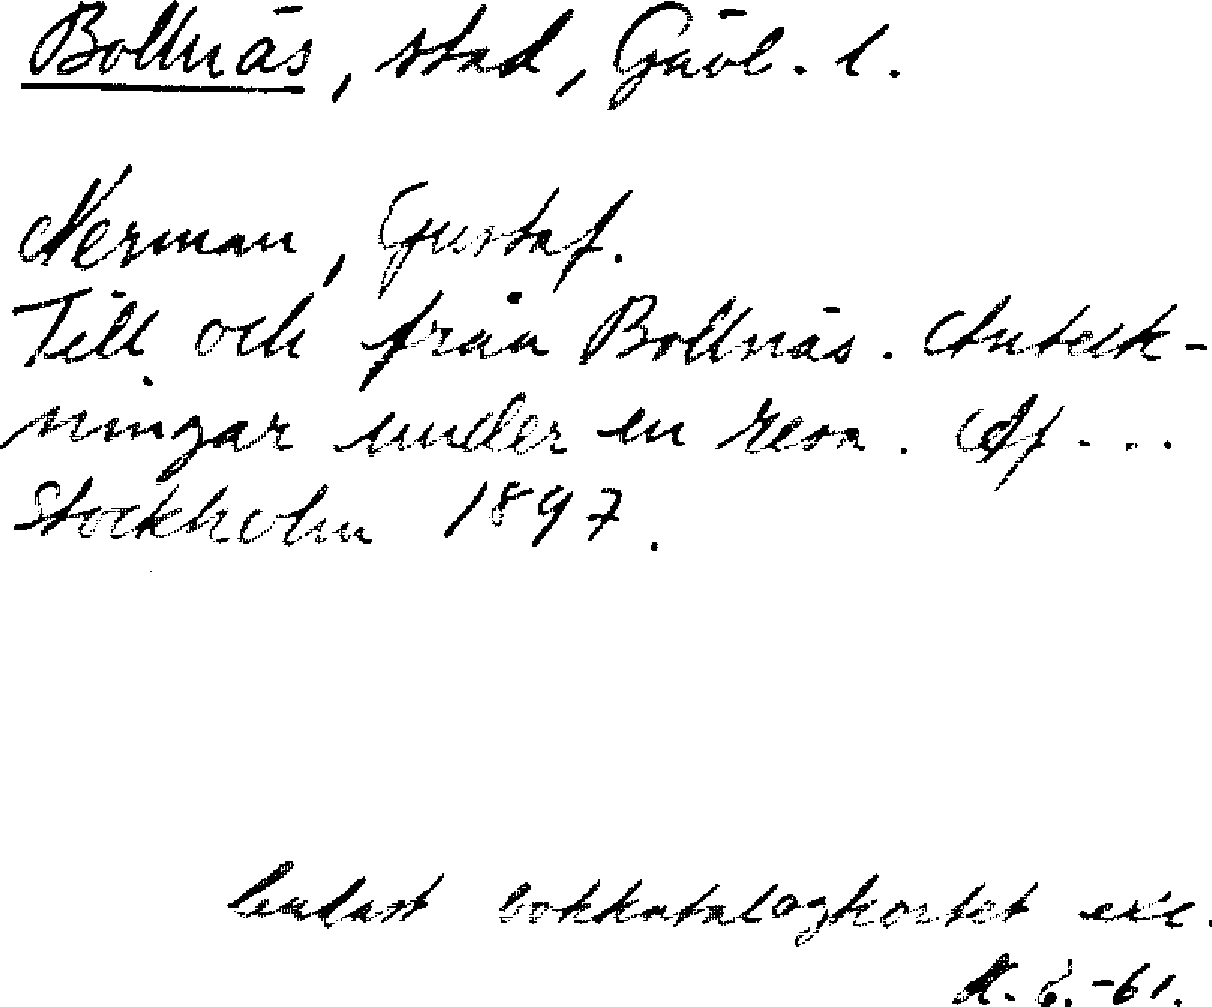 Bollnäs, stad, Gävl. l.
Nerman, Gustaf.
Till och från Bollnäs. Anteck-
ningar under en resa. Af ...
Stockholm 1897.
Endast bokkatalogkortet exc.
-61.